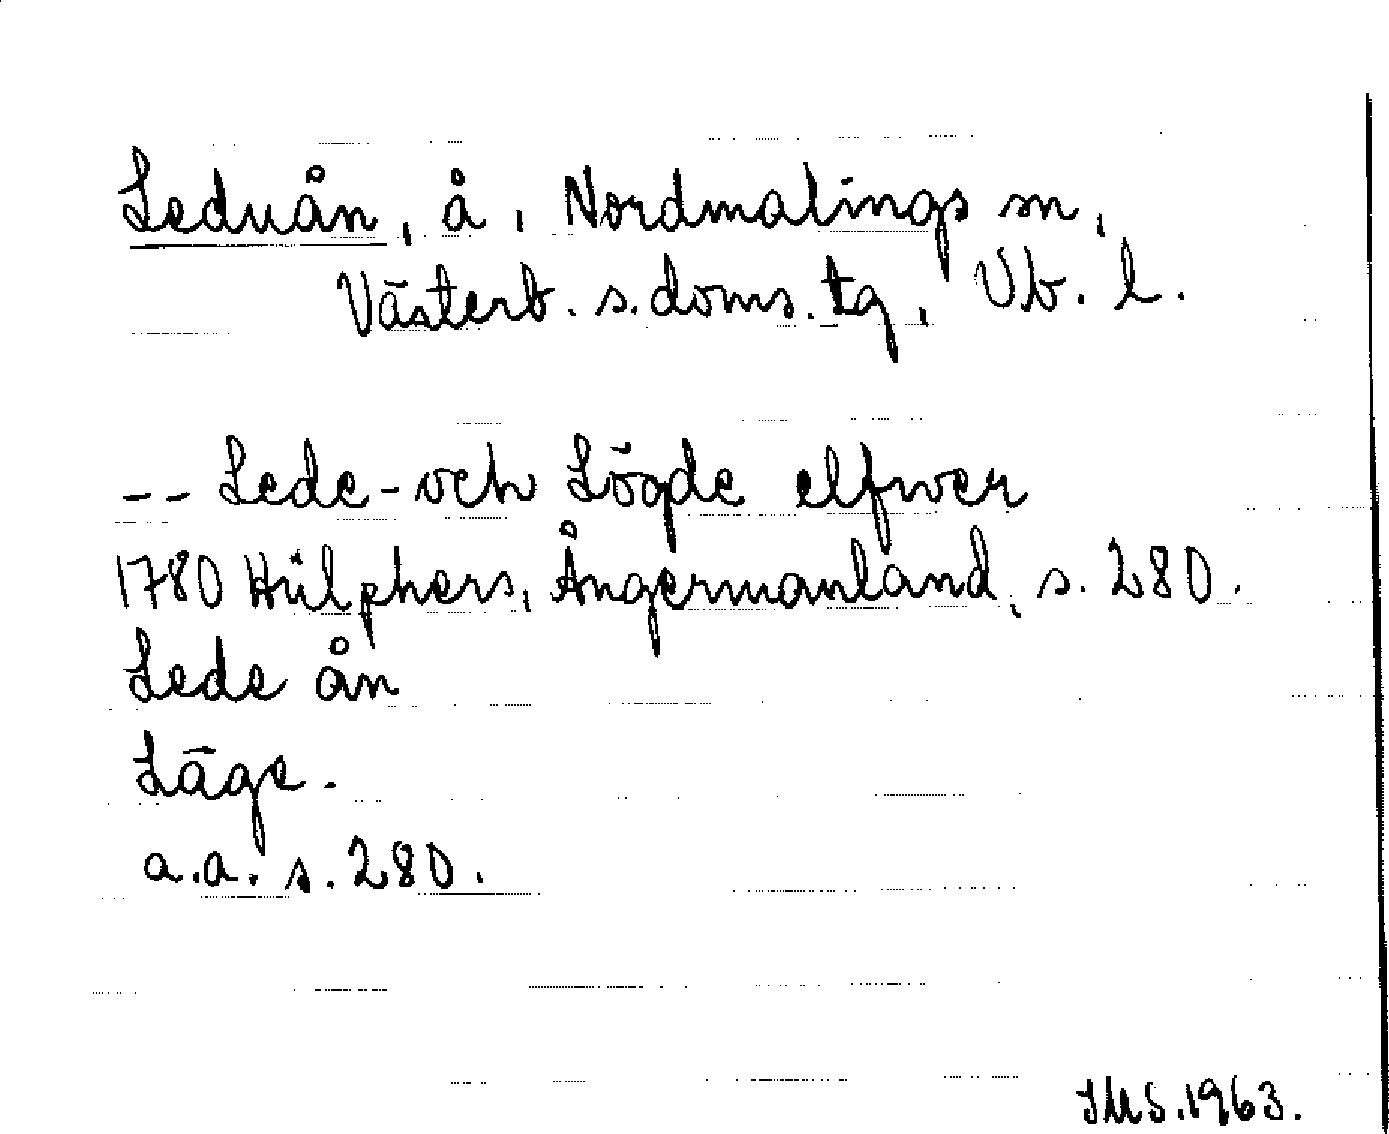 Leduån, å, Nordmalings sn,
Västerb. s. doms. tg, Vb. l.
-- Lede- och Lögde elfwer
1780 Hülphers, Ångermanland, s. 280.
Lede ån
Läge.
a.a. s. 280.
IMS.1963.